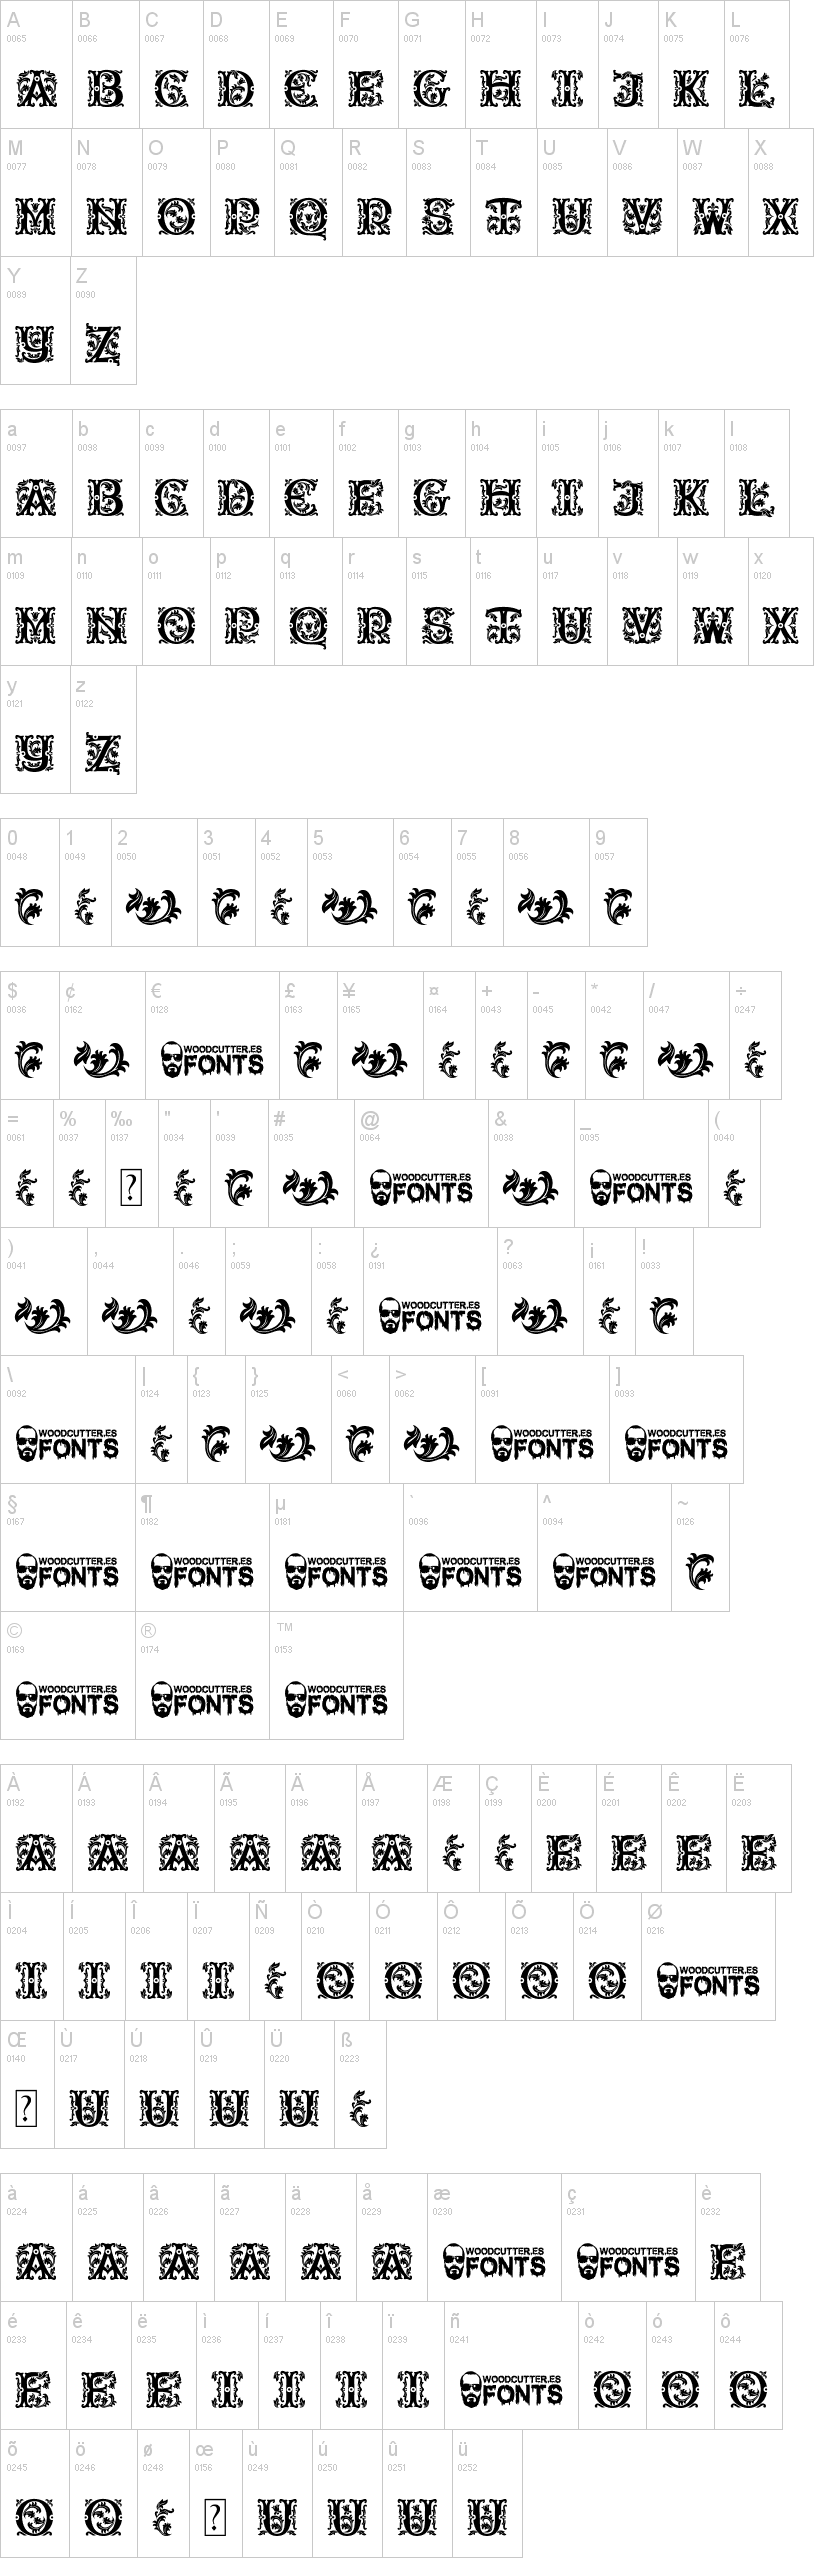 A B C D E F G H I J K L
0065 0066 0067 0068 0069 0070 0071 0072 0073 0074 0075 0076
A B C D E F G H I J K L
M N O P Q R S T U V W X
0077 0078 0079 0080 0081 0082 0083 0084 0085 0086 0087 0088
M N O P Q R S T U V W X
Y Z
0089 0090
Y Z
a b c d e f g h i j k l
0097 0098 0099 0100 0101 0102 0103 0104 0105 0106 0107 0108
A B C D E F G H I J K L
m n o p q r s t u v w x
0109 0110 0111 0112 0113 0114 0115 0116 0117 0118 0119 0120
M N O P Q R S T U V W X
y z
0121 0122
Y Z
0 1 2 3 4 5 6 7 8 9
0048 0049 0050 0051 0052 0053 0054 0055 0056 0057
$ ¢ € £ ¥ ¤ + - * / ÷
0036 0162 0128 0163 0165 0164 0043 0045 0042 0047 0247
WOODCUTTER.ES
FONTS
= % ‰ " ' # @ & _ (
0061 0037 0137 0034 0039 0035 0064 0038 0095 0040
? WOODCUTTER.ES WOODCUTTER.ES
FONTS FONTS
) , . ; : ¿ ? ¡ !
0041 0044 0046 0059 0058 0191 0063 0161 0033
WOODCUTTER.ES
FONTS
\ | { } < > [ ]
0092 0124 0123 0125 0060 0062 0091 0093
WOODCUTTER.ES WOODCUTTER.ES WOODCUTTER.ES
FONTS FONTS FONTS
§ ¶ µ ` ^ ~
0167 0182 0181 0096 0094 0126
WOODCUTTER.ES WOODCUTTER.ES WOODCUTTER.ES WOODCUTTER.ES WOODCUTTER.ES
FONTS FONTS FONTS FONTS FONTS
© ® ™
0169 0174 0153
WOODCUTTER.ES WOODCUTTER.ES WOODCUTTER.ES
FONTS FONTS FONTS
À Á Â Ã Ä Å Æ Ç È É Ê Ë
0192 0193 0194 0195 0196 0197 0198 0199 0200 0201 0202 0203
A A A A A A E E E E
Ì Í Î Ï Ñ Ò Ó Ô Õ Ö Ø
0204 0205 0206 0207 0209 0210 0211 0212 0213 0214 0216
I I I I O O O O O WOODCUTTER.ES
FONTS
Œ Ù Ú Û Ü ß
0140 0217 0218 0219 0220 0223
? U U U U
à á â ã ä å æ ç è
0224 0225 0226 0227 0228 0229 0230 0231 0232
A A A A A A WOODCUTTER.ES WOODCUTTER.ES E
FONTS FONTS
é ê ë ì í î ï ñ ò ó ô
0233 0234 0235 0236 0237 0238 0239 0241 0242 0243 0244
E E E I I I I WOODCUTTER.ES O O O
FONTS
õ ö ø œ ù ú û ü
0245 0246 0248 0156 0249 0250 0251 0252
O O ? U U U U